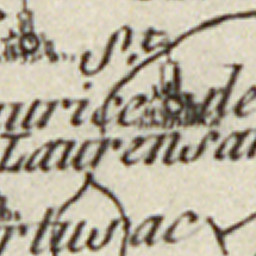 S.t
urice de
Laurensa
rtusac